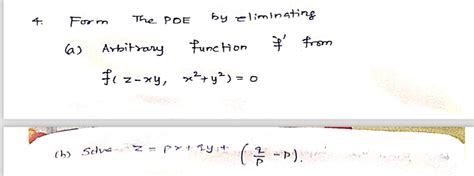 4. Form The PDE by eliminating
(a) Arbitrary function 'f' from
f(z-xy, x²+y²) = 0
(b) Solve z = px + qy + (q/p - p).